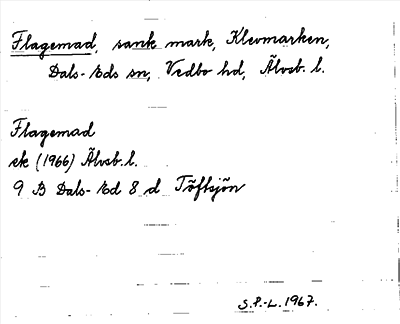 Flagemad, sank mark, Klevmarken,
Dals-Eds sn, Vedbo hd, Älvsb. l.
Flagemad
ek (1966) Älvsb. l.
9 B Dals-Ed 8 d Töftsjön
S.P.-L. 1967.